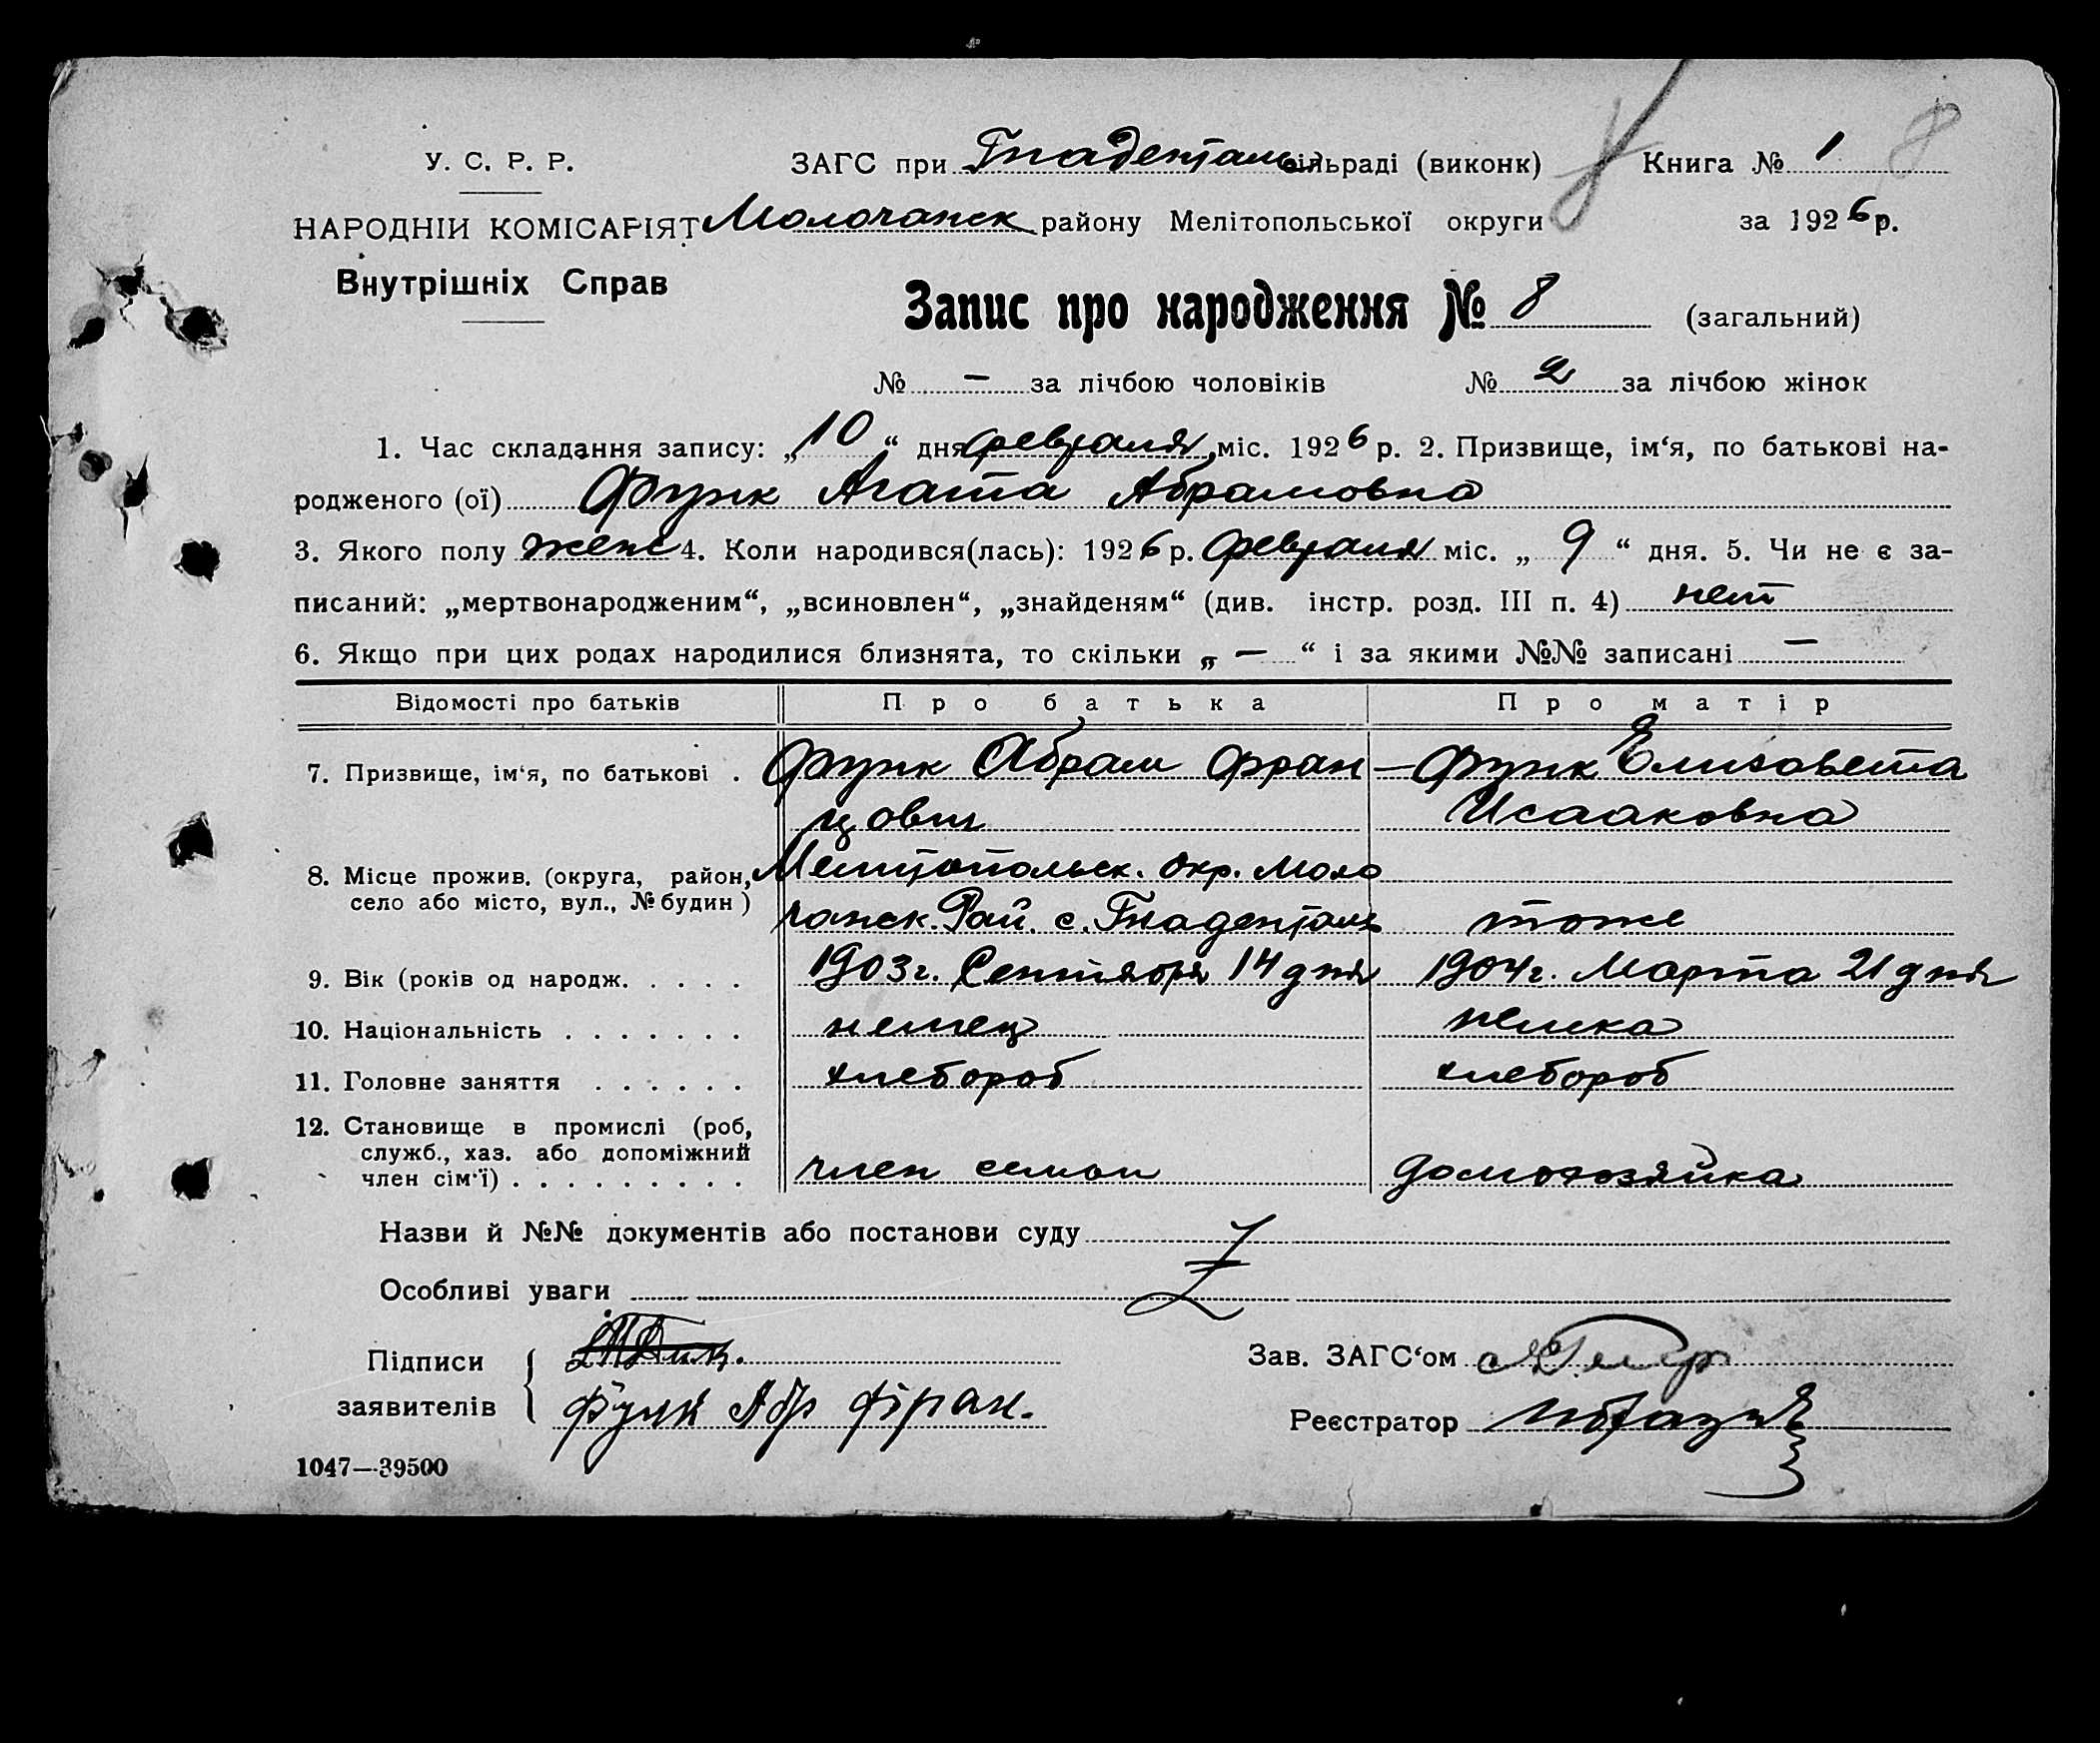 У. С. Р. Р.
ЗАГС при Гнаденталь сільраді (виконк) Книга № 1 8
НАРОДНІЙ КОМІСАРІЯТ Молочанск району Мелітопольської округи за 1926 р.
Внутрішніх Справ
Запис про народження № 8 (загальний)
№ – за лічбою чоловіків № 2 за лічбою жінок
1. Час складання запису: „10“ дня февраля міс. 1926 р. 2. Призвище, ім‘я, по батькові на-
родженого (ої) Функ Агата Абрамовна
3. Якого полу женс 4. Коли народився(лась): 1926 р. февраля міс. „9“ дня. 5. Чи не є за-
писаний: „мертвонародженим“, „всиновлен“, „знайденям“ (див. інстр. розд. III п. 4) нет
6. Якщо при цих родах народилися близнята, то скільки „–“ і за якими №№ записані –
Відомості про батьків Про батька Про матір
7. Призвище, ім‘я, по батькові . Функ Абрам Фран – Функ Елизавета
цович Исааковна
8. Місце прожив. (округа, район, Мелитопольск. окр. Моло
село або місто, вул., № будин) чанск. Рай. с. Гнаденталь тоже
9. Вік (років од народж. . . . . 1903 г. Сентября 14 дня 1904 г. Марта 21 дня
10. Національність . . . . . . . немец немка
11. Головне заняття . . . . . . хлебороб хлебороб
12. Становище в промислі (роб,
служб., хаз. або допоміжний
член сім‘ї) . . . . . . . . . член семьи домохозяйка
Назви й №№ документів або постанови суду
Особливі уваги
Підписи Зав. ЗАГС‘ом
заявителів Функ Абр Фран. Реєстратор
1047—39500